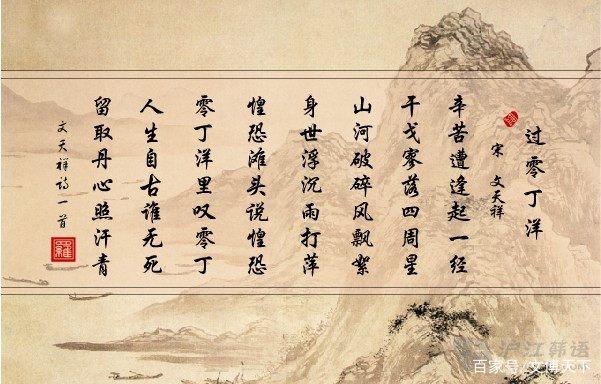 过零丁洋
宋 文天祥
辛苦遭逢起一经
干戈寥落四周星
山河破碎风飘絮
身世浮沉雨打萍
惶恐滩头说惶恐
零丁洋里叹零丁
人生自古谁无死
留取丹心照汗青
文天祥诗一首
羅
百家号/文博天下